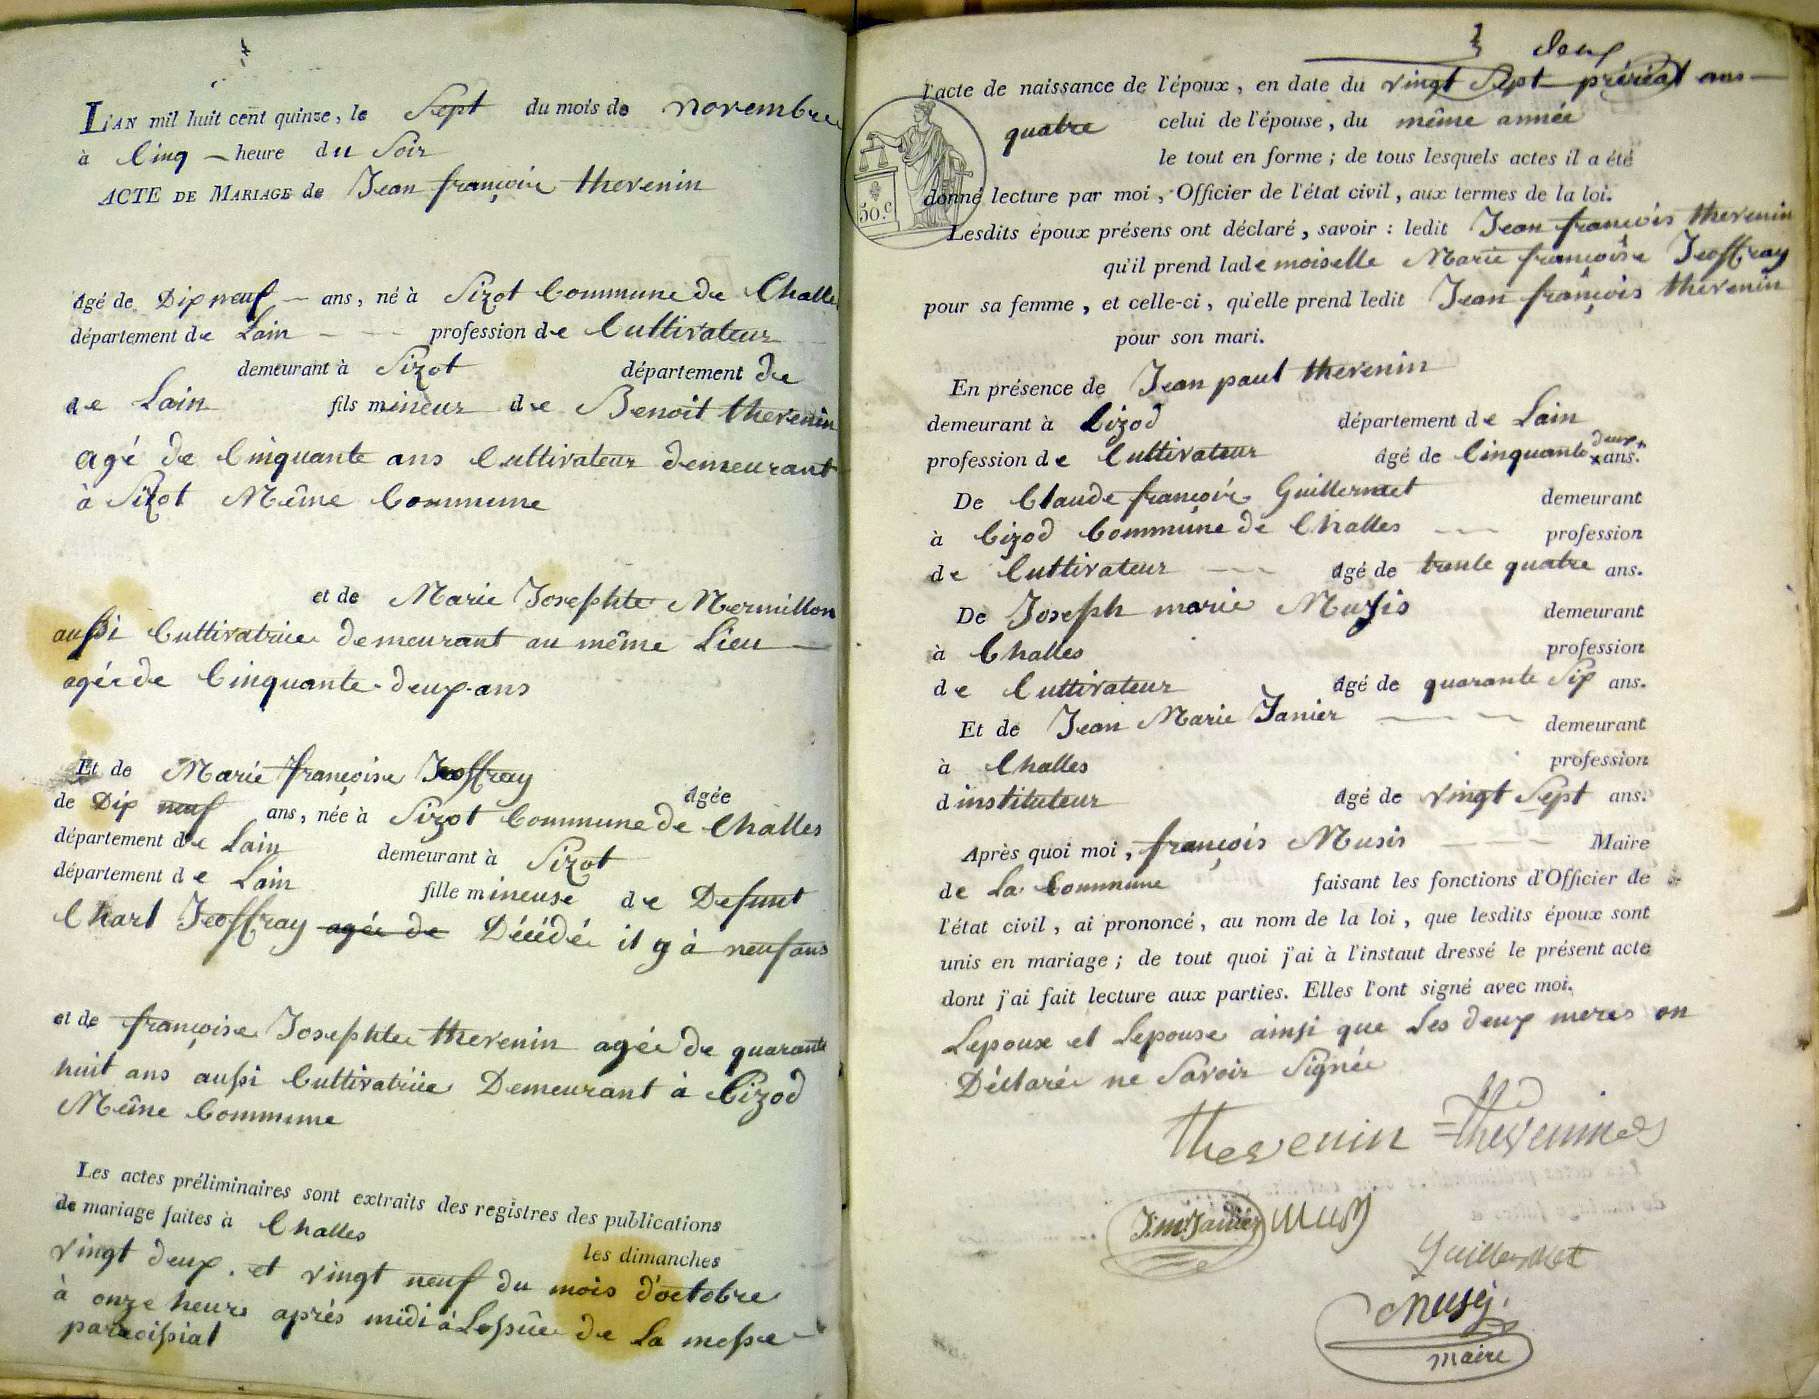 L'AN mil huit cent quinze, le Sept du mois de novembre
à Cinq — heure du Soir
ACTE DE MARIAGE de Jean françois thevenin
Agé de Dix neuf — ans, né à Sizot Commune de Challes
département de Lain - - - profession de Cultivateur
demeurant à Sizot département de
de Lain fils mineur de Benoit thevenin
agé de Cinquante ans Cultivateur demeurant
à Sizot Même Commune
et de Marie Josephte Mermillon
aussi Cultivatrice demeurant au même Lieu —
agée de Cinquante-deux-ans
Et de Marie françoise Jeoffray
Agée
de Dix neuf ans, née à Sizot Commune de Challes
département de Lain demeurant à Sizot
département de Lain fille mineuse de Defunt
Charl Jeoffray agée de Décédée il y à neuf ans
et de françoise Josephte thevenin agée de quarante
huit ans aussi Cultivatrice Demeurant à Cizod
Même Commune
Les actes préliminaires sont extraits des registres des publications
de mariage faites à Challes
les dimanches
vingt deux. et vingt neuf du mois d'octobre
à onze heure après midi à Lissüe de La messe
paroissial
deux
l'acte de naissance de l'époux, en date du vingt Sept prérial ans —
quatre celui de l'épouse, du même année
le tout en forme; de tous lesquels actes il a été
donné lecture par moi, Officier de l'état civil, aux termes de la loi.
50.c
Lesdits époux présens ont déclaré, savoir: ledit Jean françois thevenin
qu'il prend lademoiselle Marie françoise Jeoffray
pour sa femme, et celle-ci, qu'elle prend ledit Jean françois thevenin
pour son mari.
En présence de Jean paul thevenin
demeurant à Cizod département de Lain
profession de Cultivateur âgé de Cinquante deux ans.
De Claude françois Guillermet demeurant
à Cizod Commune de Challes - - - profession
de Cultivateur - - - âgé de trente quatre ans.
De Joseph marie Musis demeurant
à Challes profession
de Cultivateur âgé de quarante Six ans.
Et de Jean Marie Janier - - - demeurant
à Challes profession
dinstituteur âgé de vingt Sept ans.
Après quoi moi, françois Musis - - - Maire
de La Commune faisant les fonctions d'Officier de
l'état civil, ai prononcé, au nom de la loi, que lesdits époux sont
unis en mariage; de tout quoi j'ai à l'instaut dressé le présent acte
dont j'ai fait lecture aux parties. Elles l'ont signé avec moi.
Lepoux et Lepouse ainsi que Les deux meres on
Déclarée ne Savoir Signée
thevenin = Thevenin
J. m. Janier Musy
Guillermet
Musy.
maire